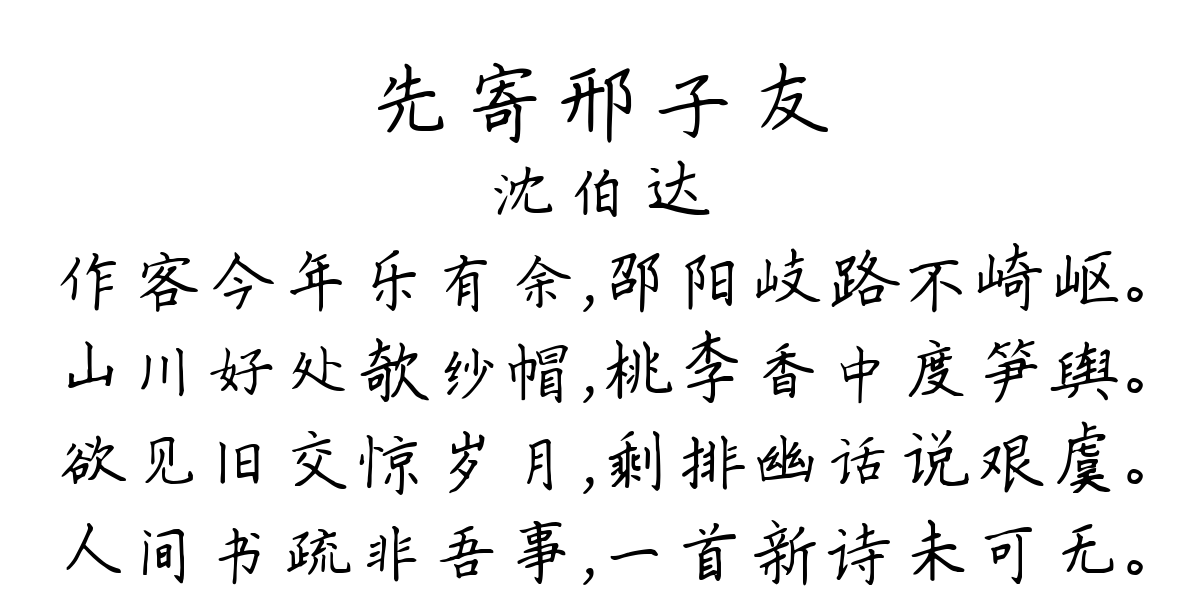 先寄邢子友
沈伯达
作客今年乐有余,邵阳岐路不崎岖。
山川好处欹纱帽,桃李香中度笋舆。
欲见旧交惊岁月,剩排幽话说艰虞。
人间书疏非吾事,一首新诗未可无。